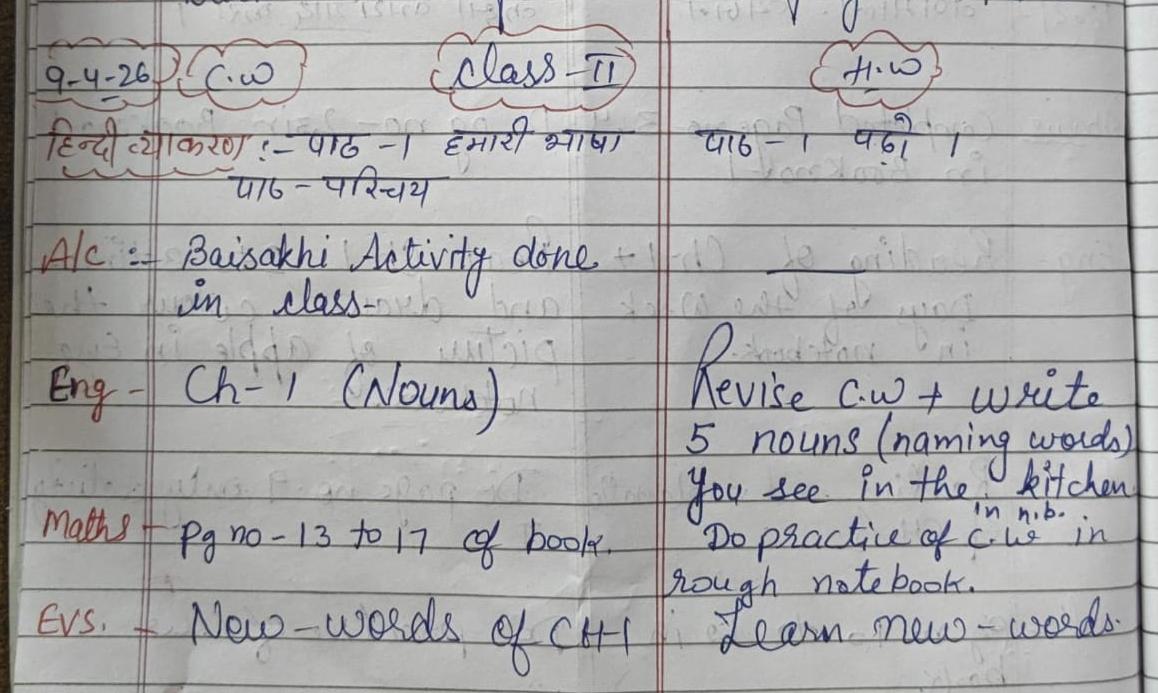 9-4-26 C.W Class-II H.W
हिन्दी व्याकरण :- पाठ -1 हमारी भाषा पाठ-1 पढ़ो ।
पाठ - परिचय
A/c :- Baisakhi Activity done
in class-
Eng - Ch-1 (Nouns) Revise C.W + write
5 nouns (naming words)
you see in the kitchen
in n.b.
Maths - Pg no-13 to 17 of book. Do practice of C.W in
rough notebook.
EVS. - New-words of CH-1 Learn new-words.